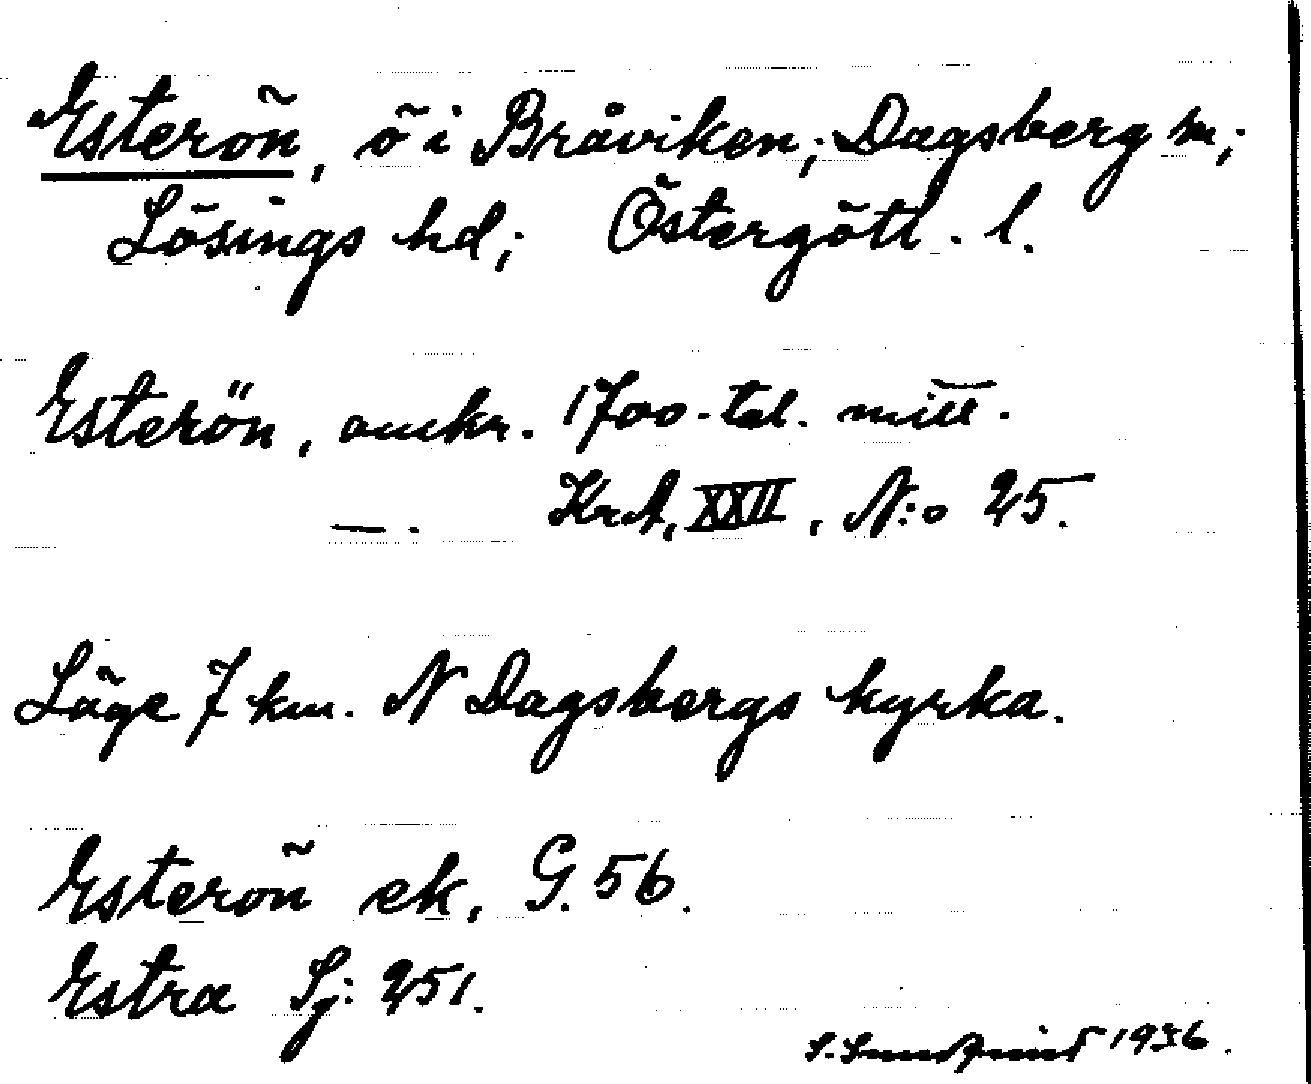 Esterön, ö i Bråviken; Dagsberg sn;
Lösings hd; Östergötl. l.
Esterön, omkr. 1700-tal. mitt.
—. KrA, XXII, N:o 25.
Läge 7 km. N Dagsbergs kyrka.
Esterön ek. G. 56.
Estra Sj: 251.
S. Lundqvist 1936.